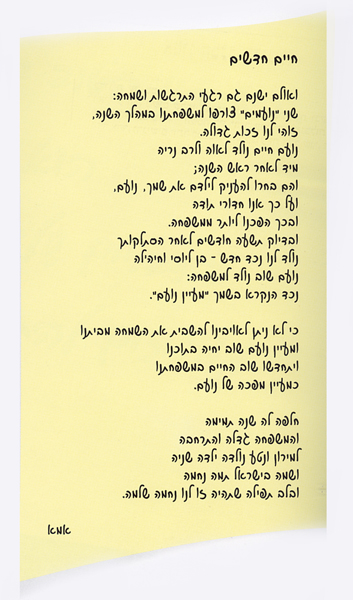 חיים חדשים
ואולם ישנם גם רגעי התרגשות ושמחה:
שני "נועמים" צורפו למשפחתנו במהלך השנה,
זוהי לנו זכות גדולה.
נועם חיים נולד לאוה ולרב נריה
מיד לאחר ראש השנה;
והם בחרו להעניק לילדם את שמך, נועם,
ועל כך אנו חדורי תודה
ובכך הפכנו ליותר ממשפחה.
ובדיוק תשעה חודשים לאחר הסתלקותך
נולד לנו נכד חדש - בן ליוסי וחיהילה
נועם שוב נולד למשפחה:
נכד הנקרא בשמך "מעיין נועם".
כי לא ניתן לאויבינו להשבית את השמחה מביתנו
ומעיין נועם שוב יחיה בתוכנו
ויתחדשו שוב החיים במשפחתנו
כמעיין מפכה של נועם.
חלפה לה שנה תמימה
והמשפחה גדלה והתרחבה
למירון ונטע נולדה ילדה שניה
ושמה בישראל תמה נחמה
ובלב תפילה שתהיה זו לנו נחמה שלמה.
אמא